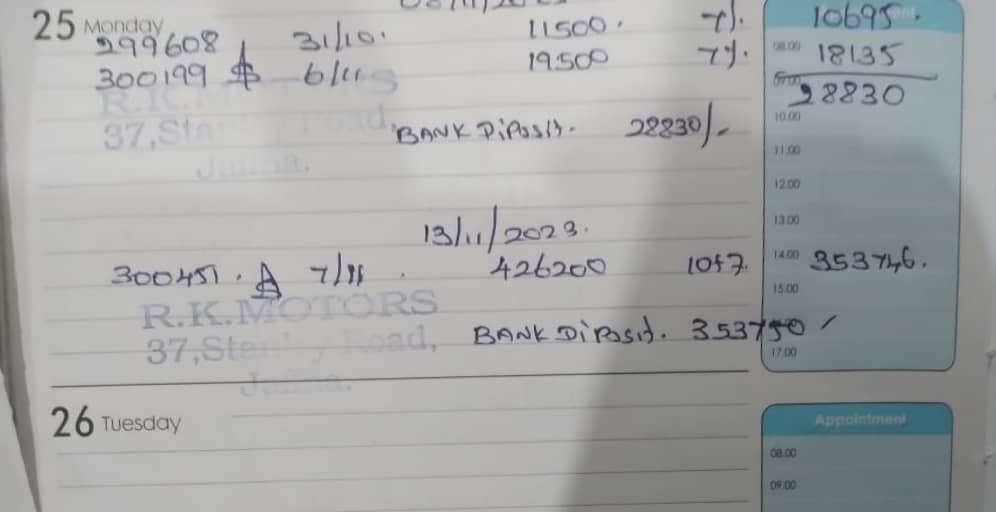 25 Monday
299608 A 31/10. 11500. 7%. 10695.
300199 A 6/11 19500 7%. 08.00 18135
28830
10.00
37, BANK DiPosit. 28830/-
11.00
12.00
13/11/2023. 13.00
300451. A 7/11. 426200 10+7. 14.00 353746.
15.00
R.K.MOTORS
37, Road, BANK DiPosit. 353750/
17.00
Jaffna.
26 Tuesday
Appointment
08.00
09.00